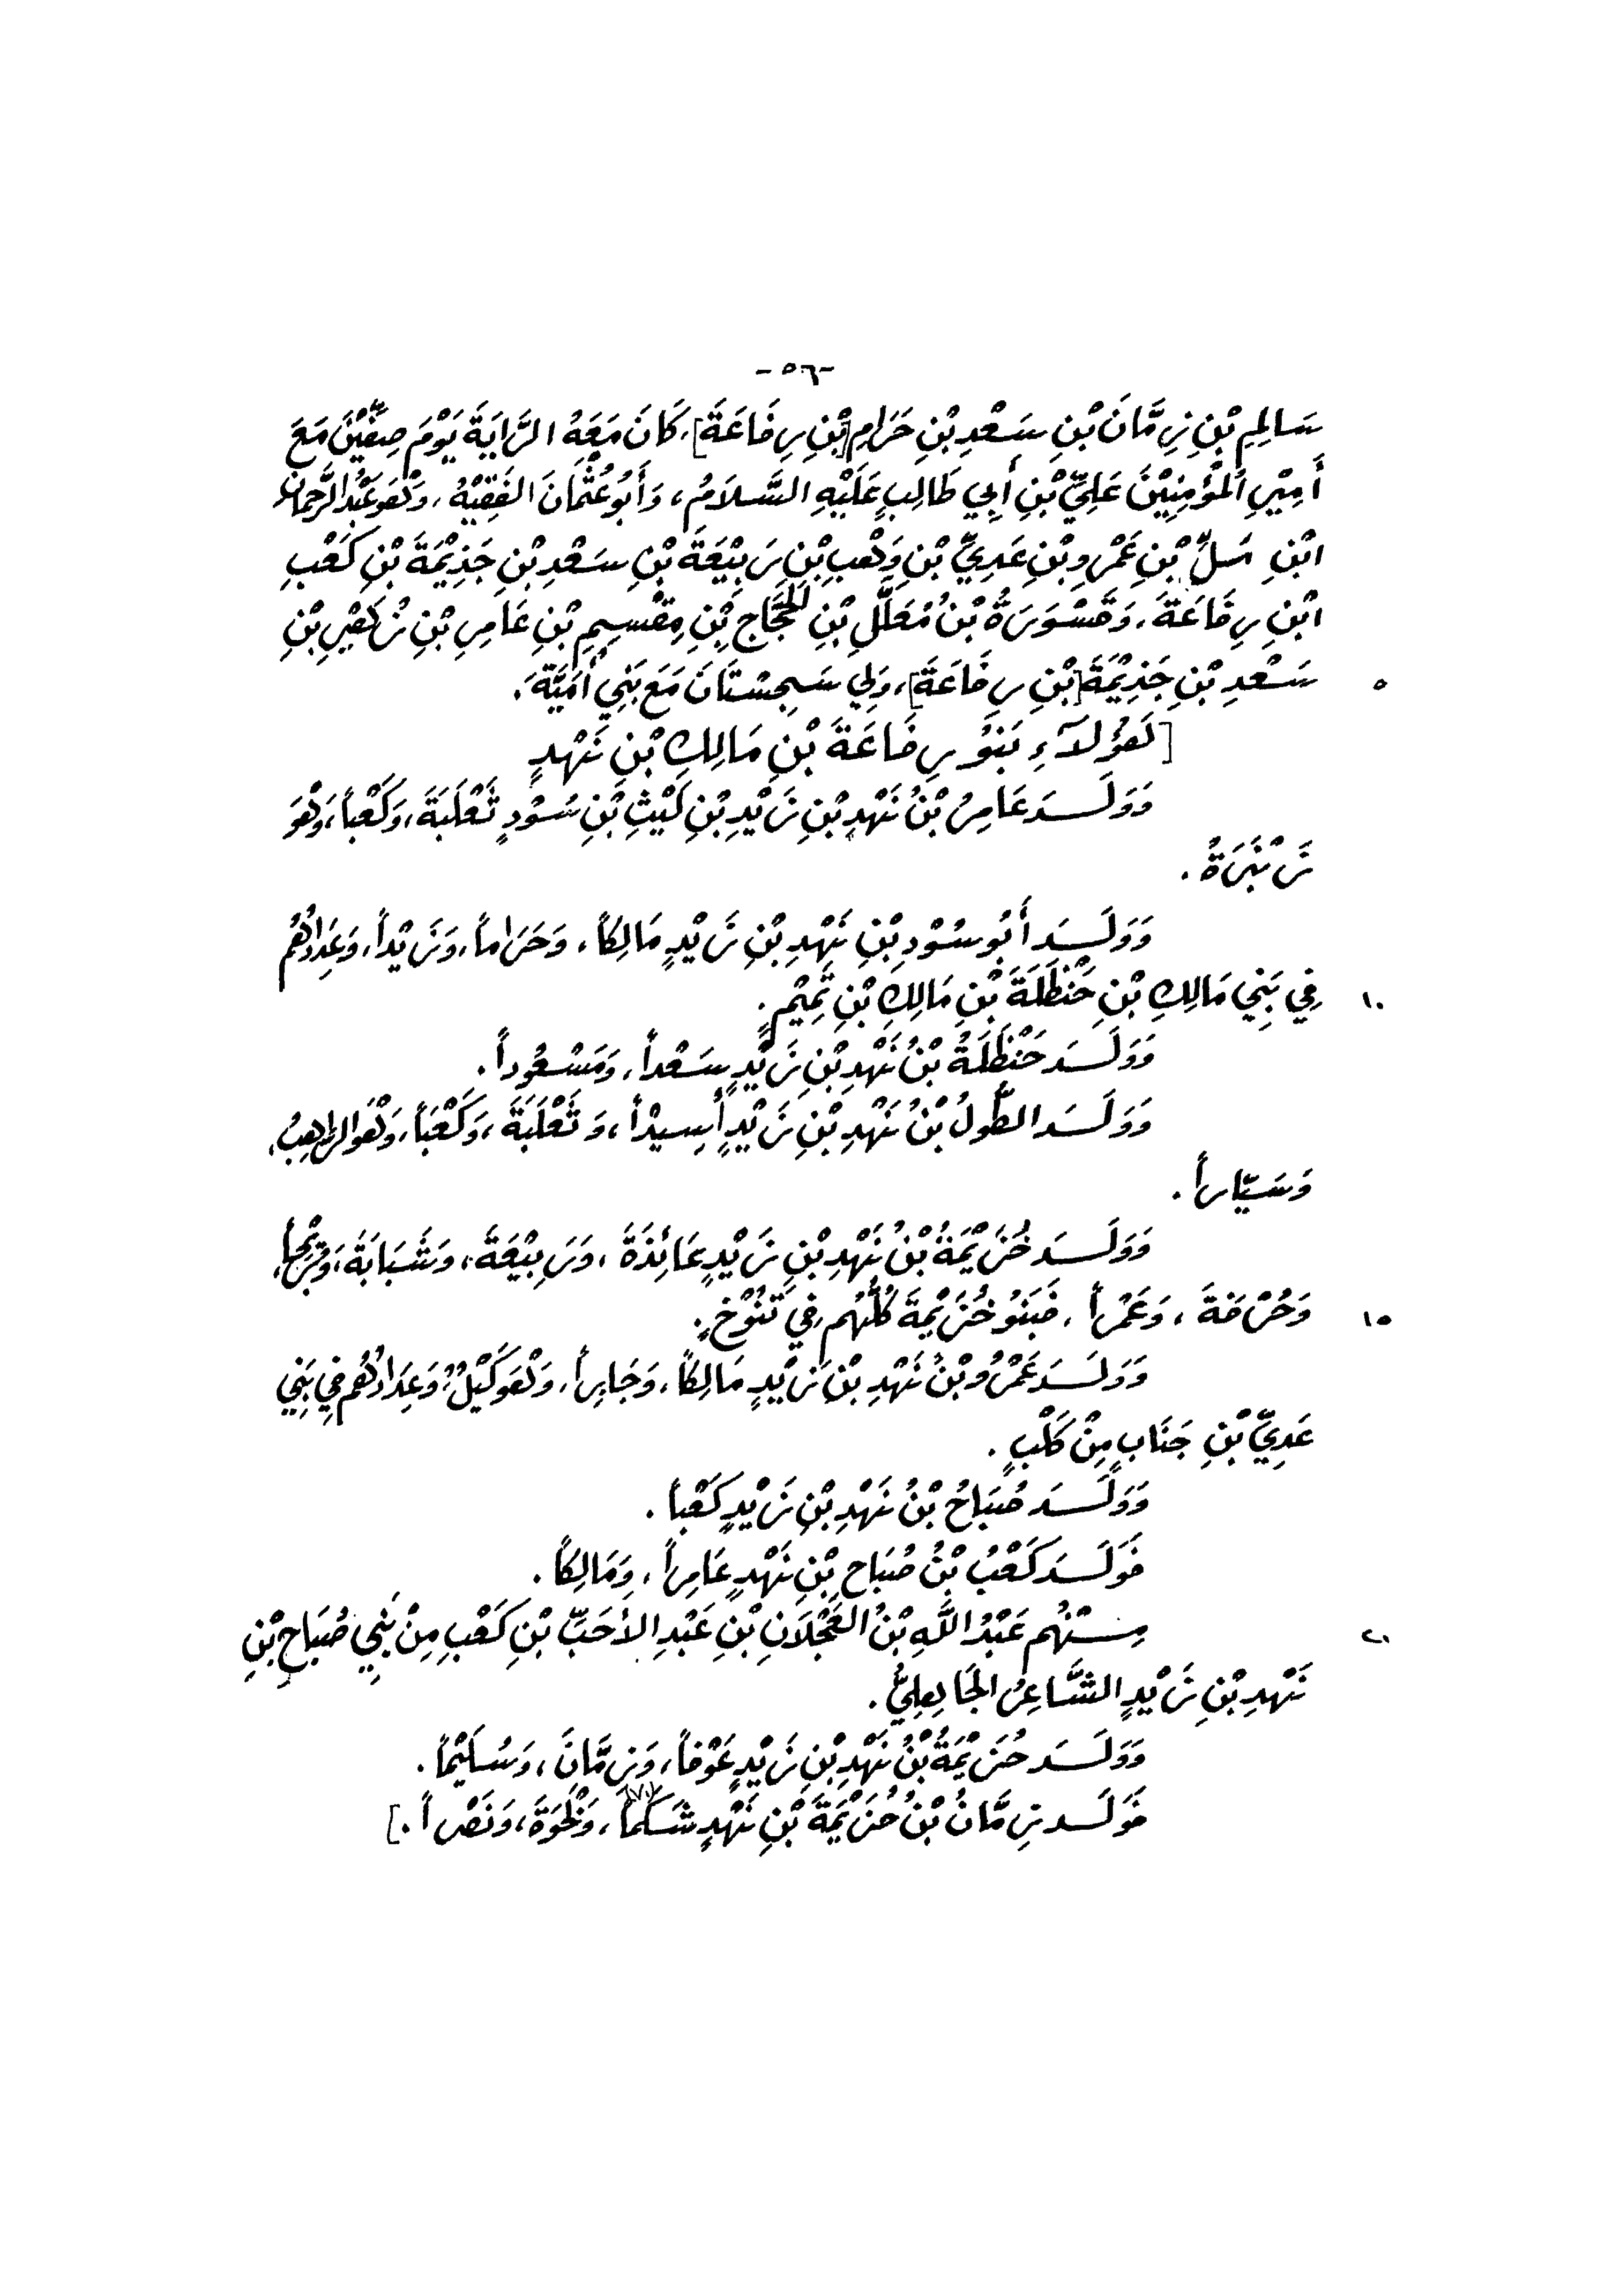 -٥٦-
سَالِمِ بْنِ زِمَّانَ بْنِ سَعْدِ بْنِ حَرَامِ [بْنِ رِفَاعَةَ]، كَانَ مَعَهُ الرَّايَةُ يَوْمَ صِفِّيْنَ مَعَ
أَمِيْرِ المُؤْمِنِيْنَ عَلِيِّ بْنِ أَبِي طَالِبٍ عَلَيْهِ السَّلَامُ، وَأَبُو عُثْمَانَ الفَقِيْهُ، وَهُوَ عَبْدُ الرَّحْمَانِ
ابْنِ مَلِّ بْنِ عَمْرِو بْنِ عَدِيِّ بْنِ وَهْبِ بْنِ رَبِيْعَةَ بْنِ سَعْدِ بْنِ جَذِيْمَةَ بْنِ كَعْبِ
ابْنِ رِفَاعَةَ، وَقَسْوَرَةُ بْنُ مُعَلَّلِ بْنِ الحَجَّاجِ بْنِ مِقْسِمِ بْنِ عَامِرِ بْنِ زُهَيْرِ بْنِ
سَعْدِ بْنِ جَذِيْمَةَ [بْنِ رِفَاعَةَ]، وَلِي سَجِسْتَانَ مَعَ بَنِي أُمَيَّةَ. ٥
[هَؤُلَآءِ بَنُو رِفَاعَةَ بْنِ مَالِكِ بْنِ نَهْدٍ
وَوَلَـدَ عَامِرُ بْنُ نَهْدِ بْنِ زَيْدِ بْنِ لَيْثِ بْنِ سُوْدٍ ثَعْلَبَةَ، وَكَعْباً، وَهْوَ
زَنْبَرَةُ.
وَوَلَـدَ أَبُو سُوْدِ بْنِ نَهْدِ بْنِ زَيْدٍ مَالِكاً، وَحَرَاماً، وَزَيْداً، وَعِدَادُهُم
فِي بَنِي مَالِكِ بْنِ حَنْظَلَةَ بْنِ مَالِكِ بْنِ تَمِيْمٍ. ١٠
وَوَلَـدَ حَنْظَلَةُ بْنُ نَهْدِ بْنِ زَيْدٍ سَعْداً، وَمَسْعُوداً.
وَوَلَـدَ الطُّولُ بْنُ نَهْدِ بْنِ زَيْدٍ أَسِيْداً، وَثَعْلَبَةَ، وَكَعْباً، وَهْوَ الرَّاهِبُ،
وَسَيَّاراً.
وَوَلَـدَ خُزَيْمَةُ بْنُ نَهْدِ بْنِ زَيْدٍ عَائِذَةَ، وَرَبِيْعَةَ، وَشَبَابَةَ،
وَحُرْفَةَ، وَعَمْراً، فَبَنُو خُزَيْمَةَ كُلُّهُم فِي تَنُوْخٍ. ١٥
وَوَلَـدَ عَمْرُو بْنُ نَهْدِ بْنِ زَيْدٍ مَالِكاً، وَجَابِراً، وَهْوَ كَيْلٌ، وَعِدَادُهُم فِي بَنِي
عَدِيِّ بْنِ جَنَابٍ مِنْ كَلْبٍ.
وَوَلَـدَ صُبَاحُ بْنُ نَهْدِ بْنِ زَيْدٍ كَعْباً.
فَوَلَـدَ كَعْبُ بْنُ صُبَاحِ بْنِ نَهْدٍ عَامِراً، وَمَالِكاً.
مِنْهُم عَبْدُ اللَّهِ بْنُ العَجْلَانِ بْنِ عَبْدِ الأَحَبِّ بْنِ كَعْبِ مِنْ بَنِي صُبَاحِ بْنِ ٢٠
نَهْدِ بْنِ زَيْدٍ الشَّاعِرُ الجَاهِلِيُّ.
وَوَلَـدَ حُزَيْمَةُ بْنُ نَهْدِ بْنِ زَيْدٍ عَوْفاً، وَزِمَّانَ، وَسُلَيْماً.
فَوَلَـدَ زِمَّانُ بْنُ حُزَيْمَةَ بْنِ نَهْدٍ شَكَماً، وَنَصْراً.]